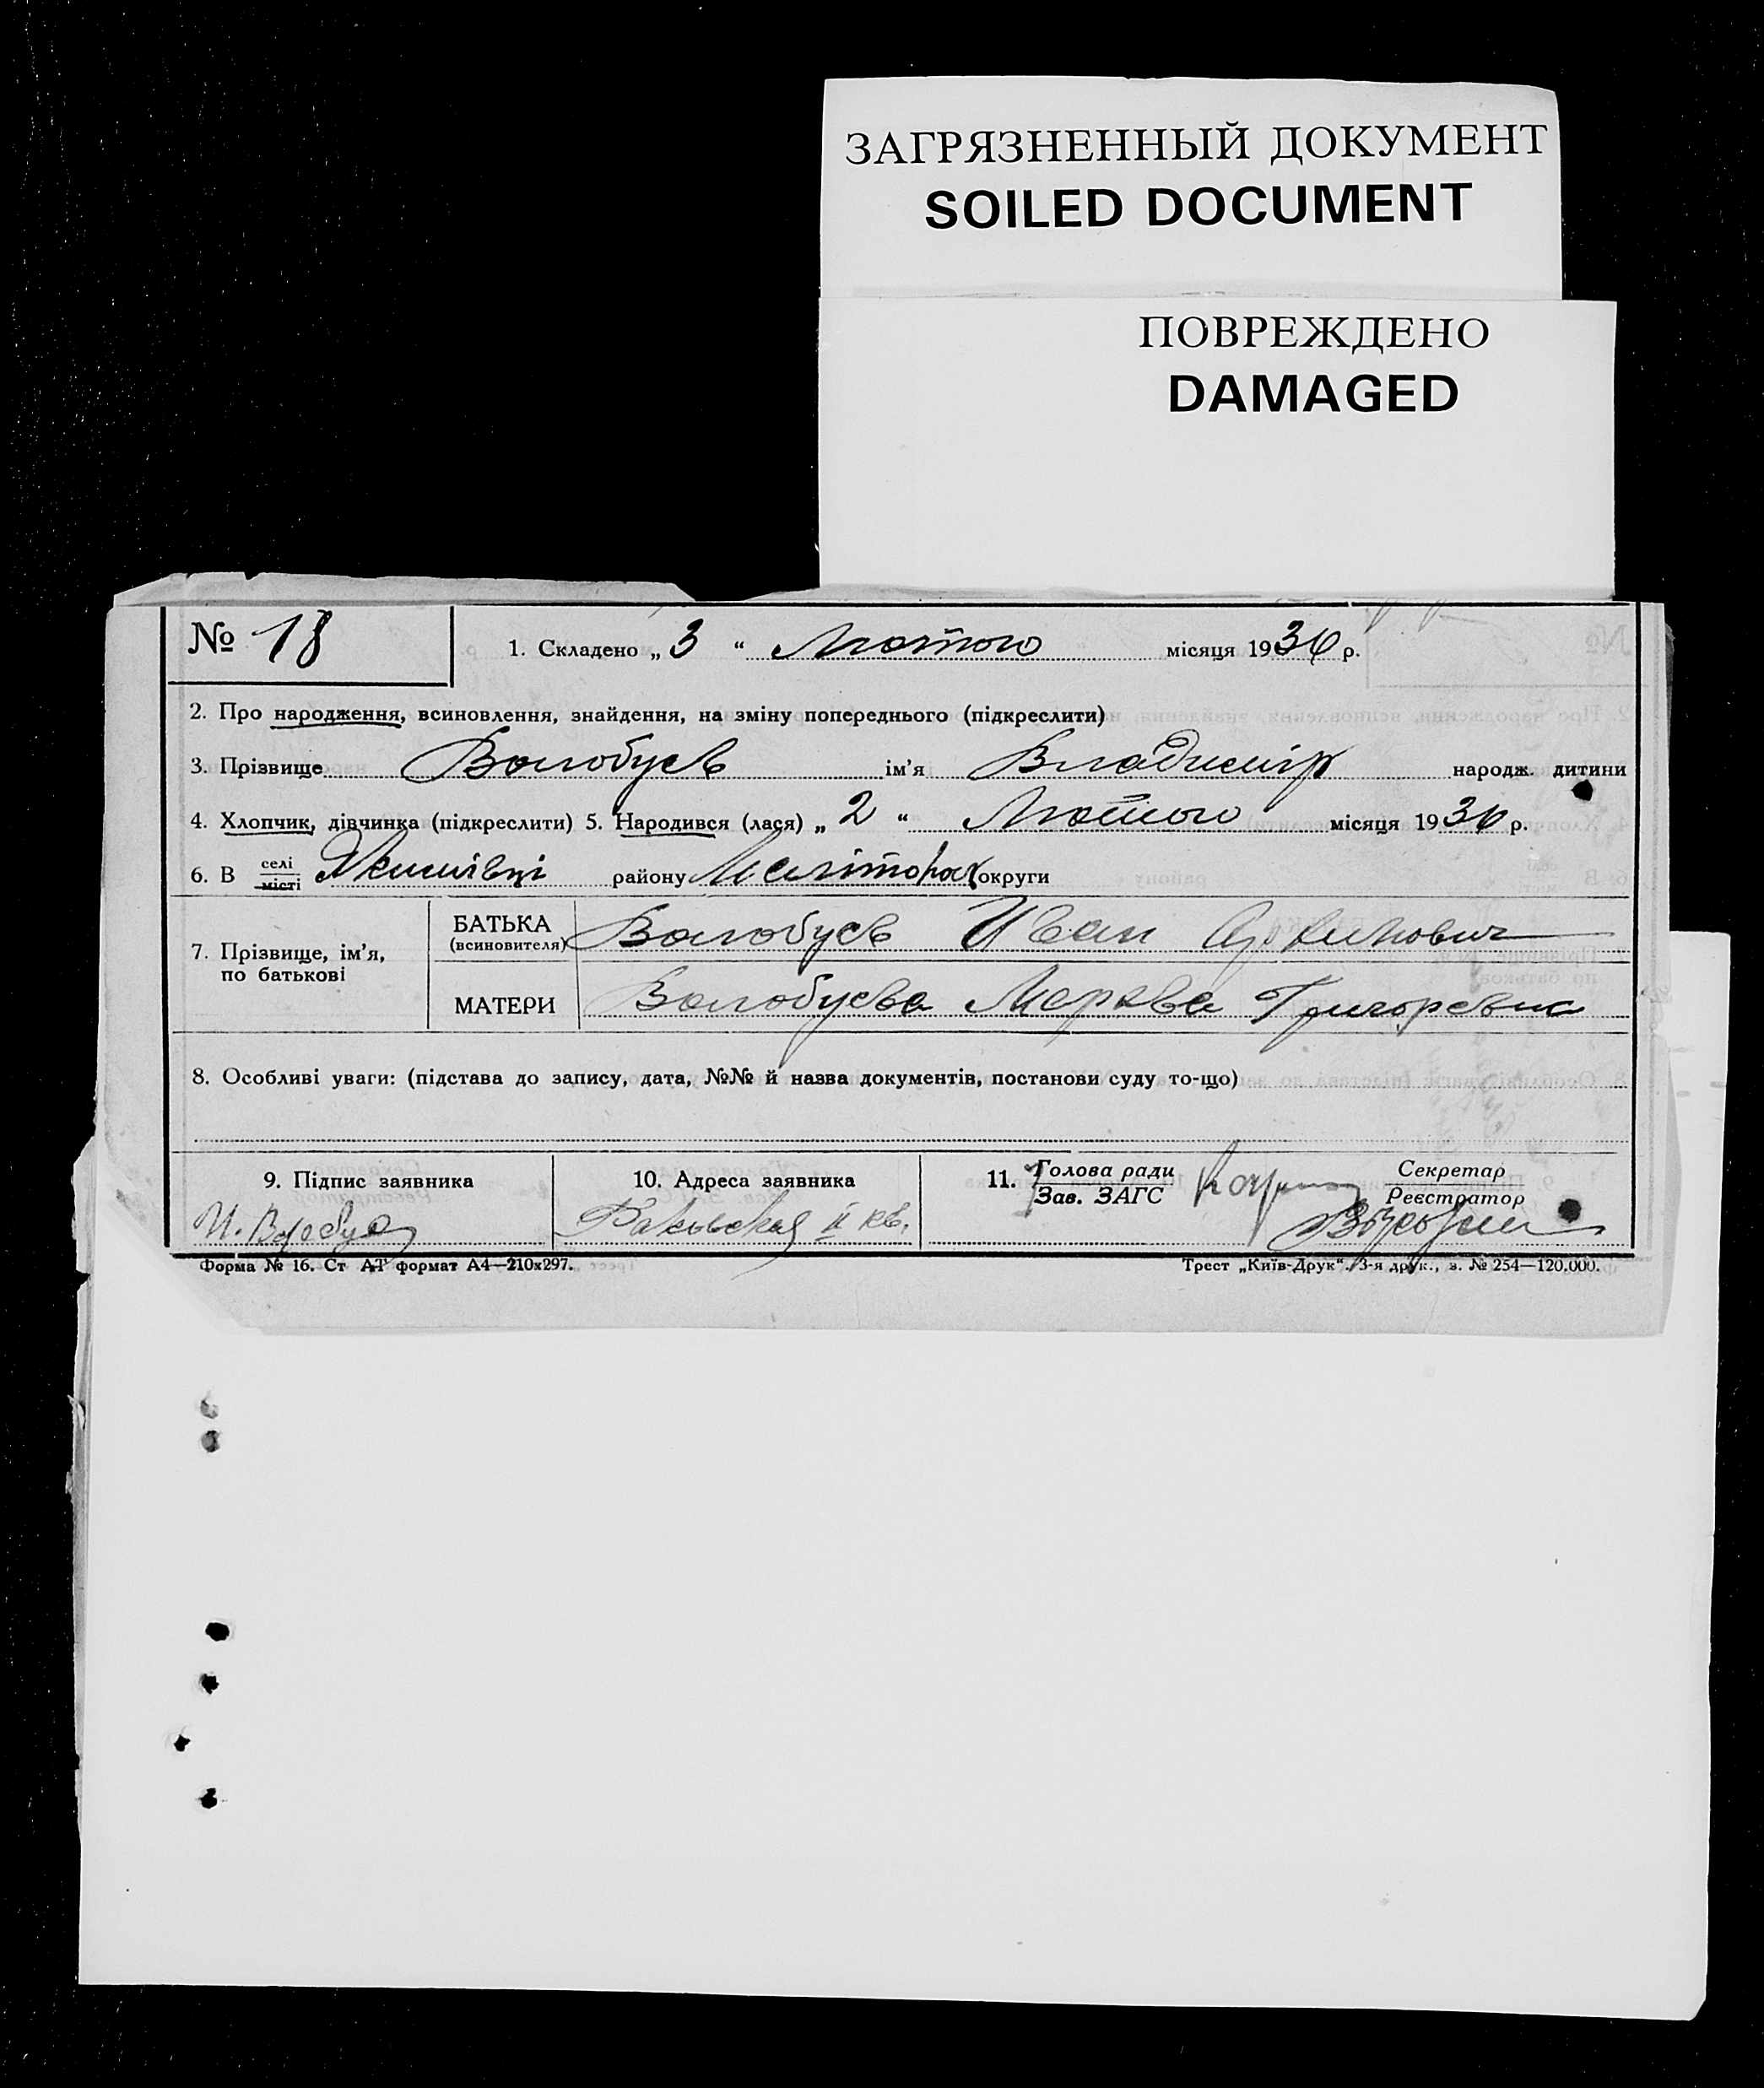 ЗАГРЯЗНЕННЫЙ ДОКУМЕНТ
SOILED DOCUMENT
ПОВРЕЖДЕНО
DAMAGED
№ 18
1. Складено „ 3 “ Лютого місяця 1930 р.
2. Про народження, всиновлення, знайдення, на зміну попереднього (підкреслити)
3. Прізвище Волобуєв ім'я Владимір народж. дитини
4. Хлопчик, дівчинка (підкреслити) 5. Народився (лася) „ 2 “ Лютого місяця 1930 р.
6. В селі місті Якимівці району Мелітопол округи
7. Прізвище, ім'я, по батькові
БАТЬКА (всиновителя) Волобуєв Иван
МАТЕРИ Волобуєва Марфа Григоревна
8. Особливі уваги: (підстава до запису, дата, №№ й назва документів, постанови суду то-що)
9. Підпис заявника
10. Адреса заявника
11. Голова ради Зав. ЗАГС
Секретар Реєстратор
И.
Раковская II кв.
Форма № 16. Ст АТ формат А4—210х297.
Трест „Київ-Друк“. 3-я друк., з. № 254—120.000.